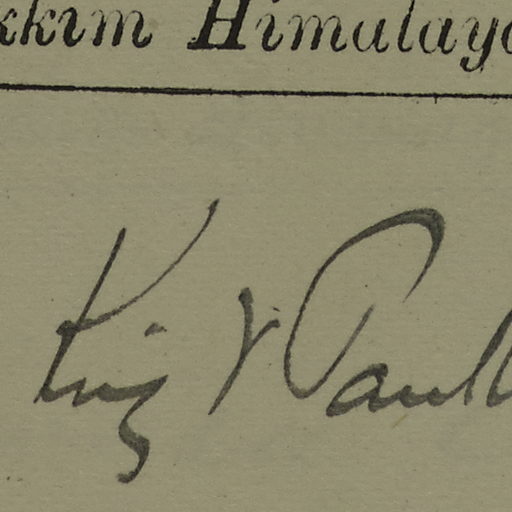 kkim Himalaya
King &